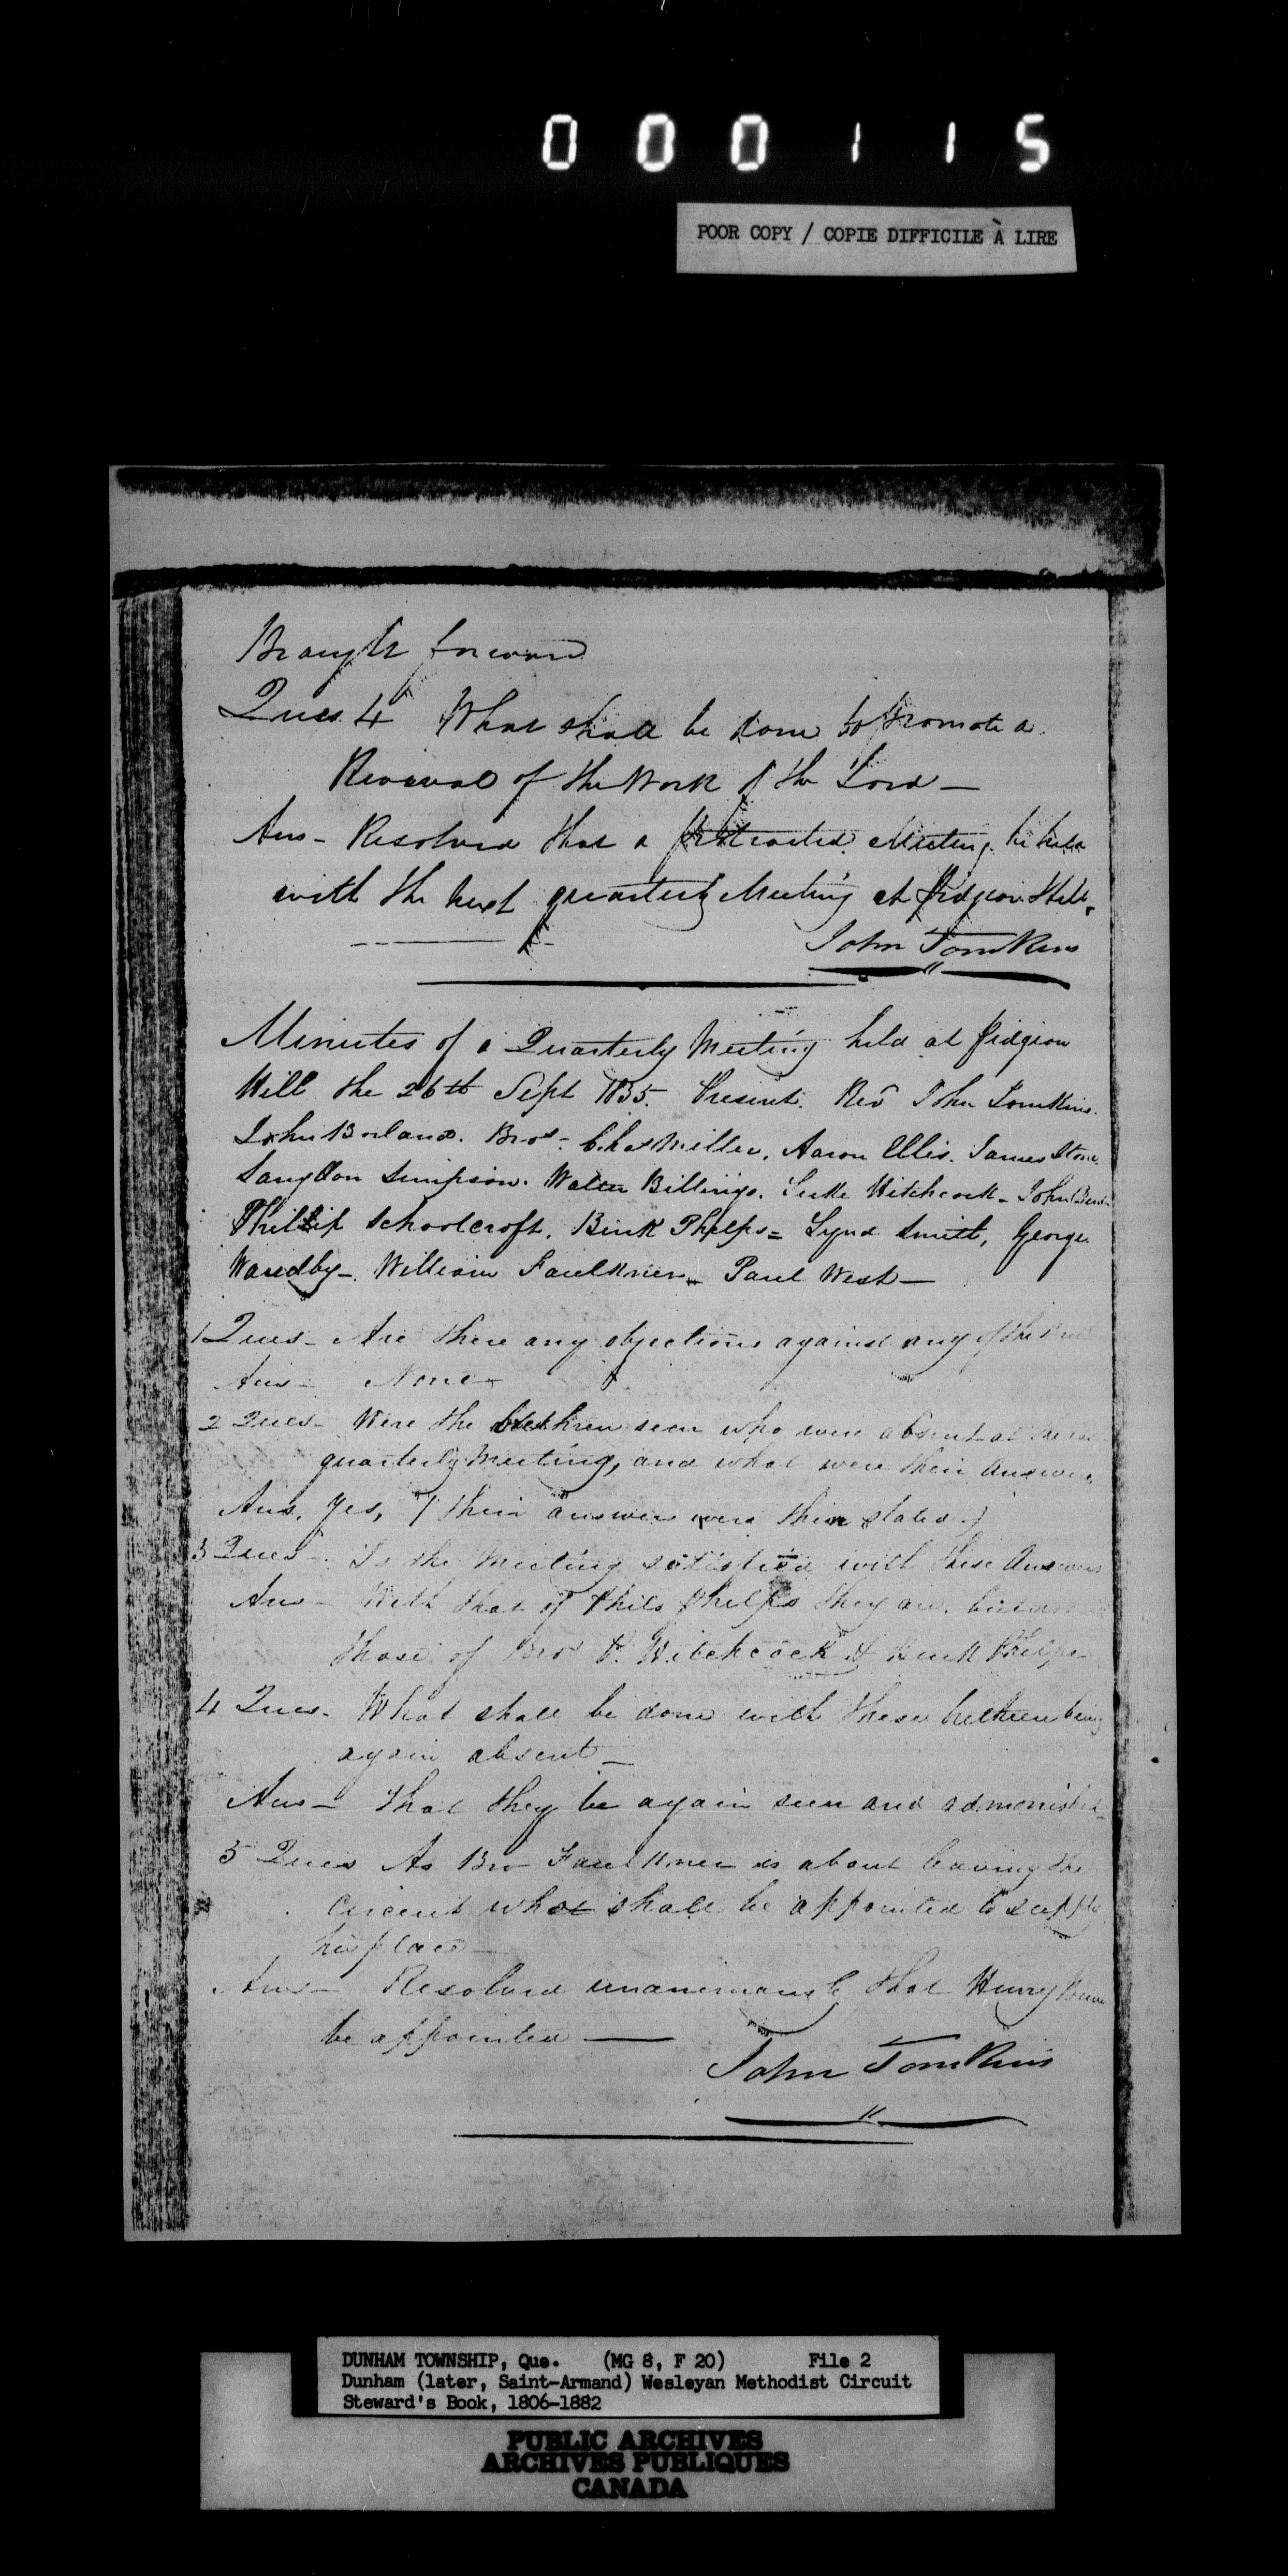 000115
POOR COPY / COPIE DIFFICILE À LIRE
Brought forward
Ques. 4 What shall be done to promote a
Revival of the Work of the Lord —
Ans - Resolved that a protracted Meeting be held
with the next quarterly Meeting at Pidgeon Hill,
John Tomkins
Minutes of a Quarterly Meeting held at Pidgeon
Hill the 26th Sept 1835. Present. Rev John Tomkins.
John Borland. Bros - Chas Miller, Aaron Ellis. James Stone.
Langdon Simpson. Walter Billings. Luke Hitchcock - John
Phillip Schoolcroft. Benk Phelps = Lynd Smith, George
Wandby - William Faulkner - Paul West —
1 Ques - Are there any objections against any of the
Ans - None -
2 Ques - Were the brethren seen who were absent at
quarterly Meeting, and what were their answers
Ans. Yes, (their answers were then stated.)
3 Ques - Is the Meeting satisfied with these Answers
Ans - With that of Philo Phelps they are.
those of Bros P. Hitchcock & Benk Phelps
4 Ques - What shall be done with these brethren being
again absent —
Ans - That they be again seen and admonished
5 Ques As Bro Faulkner is about leaving the
Circuit who shall be appointed to supply
his place —
Ans - Resolved unanimously that Henry
be appointed —
John Tomkins
DUNHAM TOWNSHIP, Que. (MG 8, F 20) File 2
Dunham (later, Saint-Armand) Wesleyan Methodist Circuit
Steward's Book, 1806-1882
PUBLIC ARCHIVES
ARCHIVES PUBLIQUES
CANADA